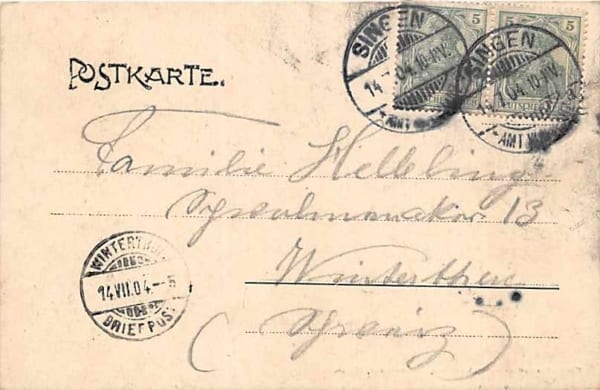 5 5
SINGEN
14.7.04.10-11V.
AMT
SINGEN
04.10-11V.
AMT
POSTKARTE.
Familie Helbling
13
Winterthur
(Schweiz)
WINTERTHUR
14.VII.04.-5
BRIEFPOST